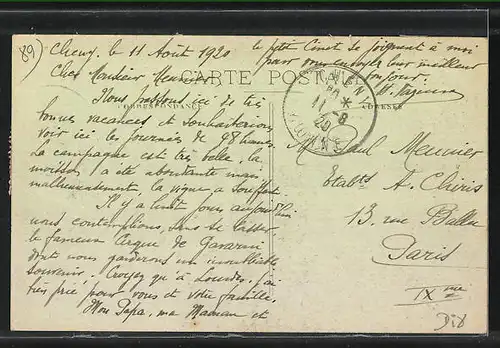 89)
Cheny, le 11 Août 1920
Cher Monsieur Meunier
CARTE POSTALE
CORRESPONDANCE
ADRESSE
Nous passons ici de très
bonnes vacances et souhaiterions
voir ici les journées de 48 heures.
La campagne est très belle, la
moisson a été abondante mais
malheureusement, la vigne a souffert.
Il y a huit jours aujourd'hui
nous contemplions, sans se lasser
le fameux Cirque de Gavarni
dont nous garderons un inoubliable
souvenir. Croyez qu'à Lourdes, j'ai
très prié pour vous et votre famille.
Mon Papa, ma Maman et
le petit se joignent à moi
pour vous envoyer leur meilleur
bonjour.
11 -8
20
YONNE
M. Paul Meunier
Etabts A. Chiris
13 rue Ballu
Paris
IXme